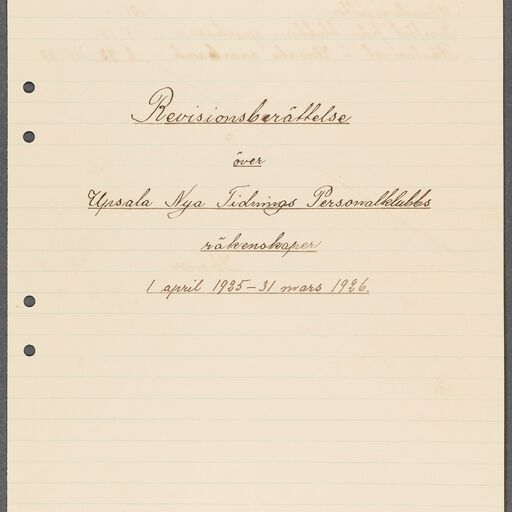 Revisionsberättelse
över
Upsala Nya Tidnings Personalklubbs
räkenskaper
1 april 1925-31 mars 1926.